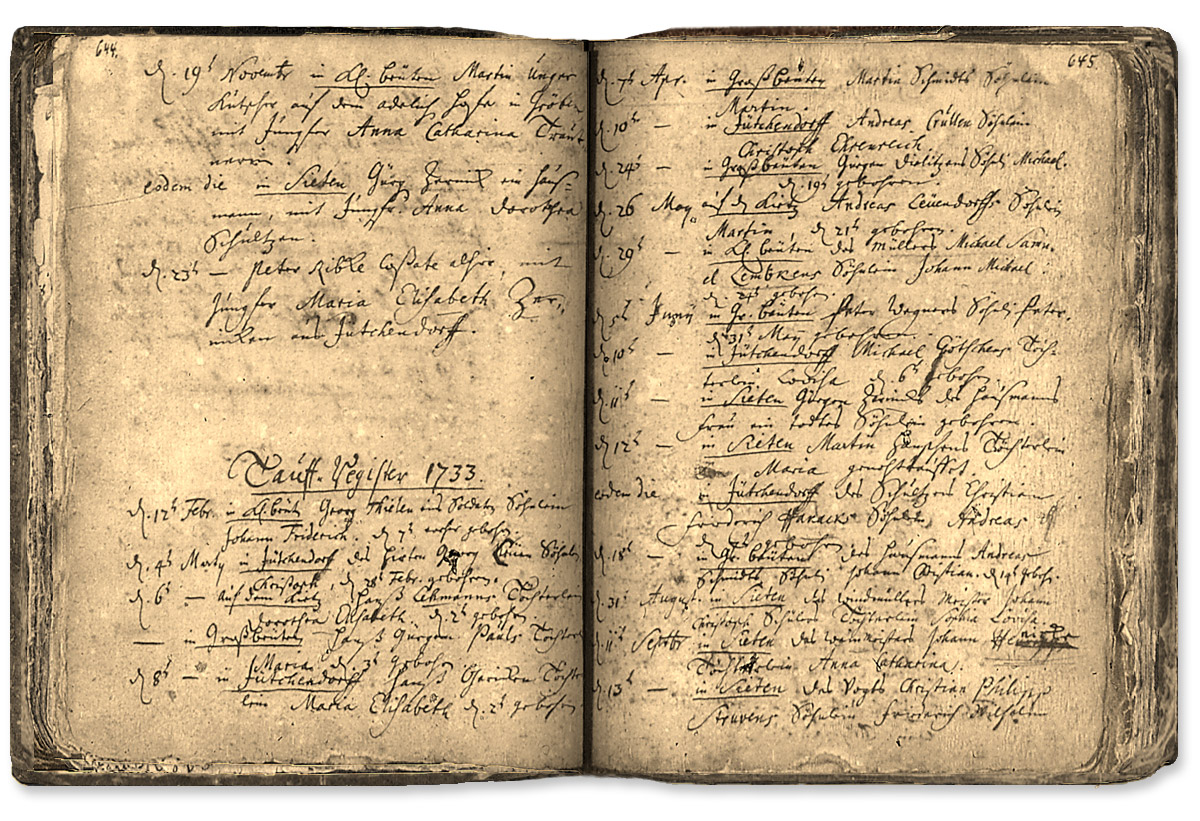 644.
d. 19t Novembr in Kl. beuten Martin Unger
Kutscher auf dem adelich hofe in Gröben
mit Jungfer Anna Catharina
nerin.
eodem die in Sieten Jürg Zernik ein hauß-
mann, mit Jungfr. Anna Dorothea
Schultzen.
d. 23t — Peter Ribke Coßate alhir, mit
Jungfer Maria Elisabeth Zer-
niken aus Jütchendorff.
Tauff-Register 1733.
d. 12t Febr. in Kl. beut. Georg Thielen Soldaten Söhnlein
Johann Friderich. d. 7t gebohren
d. 4t Marty in Jütchendorf des hirten Georg Söhnlein
Christoph, d. 28t Febr. gebohren.
d. 6t — auf dem Kietz, Hanß Lehmanns Töchterlein
Dorothea Elisabeth d. 2t gebohren
— in Großbeuten Hanß Jürgen Pauls Töchterl
Maria d. 3t gebohren
d. 8t — in Jütchendorff Hanß Töchter-
lein Maria Elisabeth d. 2t gebohren
645
d. 7t Apr. in Großbeuten Martin Schmidts Söhnlein
Martin.
d. 10t — in Jütchendorff Andreas Crüllen Söhnlein
Christoph Ehrenreich
d. 24t — in Großbeuten Jürgen Söhnl. Michael.
d. 19t gebohren
d. 26 May auf d. Kietz Andreas Leuendorffs Söhnlein
Martin, d. 21t gebohren.
d. 29t — in Kl. beuten des Müllers Michael Samu-
el Lembkens Söhnlein Johann Michael
d. 24t gebohren
d. 5t Juny in Gr. beuten Peter Wegners Söhnl. Peter.
d. 31t May gebohren
d. 10t — in Jütchendorff Michael Götschens Töch-
terlein Lovisa d. 6t gebohren
d. 11t — in Sieten Jürgen Zerniks des haußmanns
frau ein todtes Söhnlein gebohren.
d. 12t — in Sieten Martin Töchterlein
Maria
eodem die in Jütchendorff des Schultzens Christian
Friederich Söhnlein Andreas
gebohren
d. 18t — in Gr. beuten des haußmanns Andreas
Schmidts Söhnl. Johann Christian. d. 14t gebohr.
d. 31t August. in Sieten des Windmüllers Meister Johann
Christoph Töchterlein Sophia Lovisa.
d. 11t Septbr in Sieten des Weinmeisters Johann
Töchterlein Anna Catharina.
d. 13t — in Sieten des Vogts Christian Philipp
Struvens Söhnlein Friederich Wilhelm